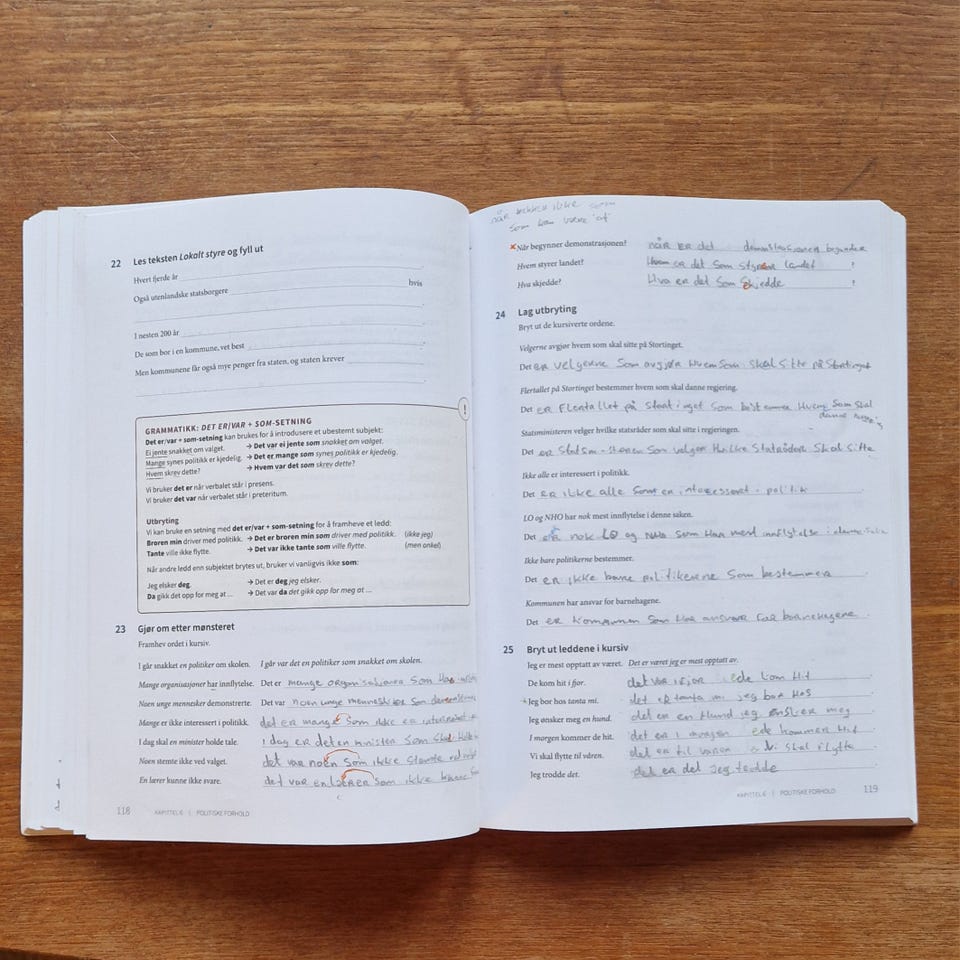 22 Les teksten Lokalt styre og fyll ut
Hvert fjerde år
Også utenlandske statsborgere hvis
I nesten 200 år
De som bor i en kommune, vet best
Men kommunene får også mye penger fra staten, og staten krever
!
GRAMMATIKK: DET ER/VAR + SOM-SETNING
Det er/var + som-setning kan brukes for å introdusere et ubestemt subjekt:
Ei jente snakket om valget. → Det var ei jente som snakket om valget.
Mange synes politikk er kjedelig. → Det er mange som synes politikk er kjedelig.
Hvem skrev dette? → Hvem var det som skrev dette?
Vi bruker det er når verbalet står i presens.
Vi bruker det var når verbalet står i preteritum.
Utbryting
Vi kan bruke en setning med det er/var + som-setning for å framheve et ledd:
Broren min driver med politikk. → Det er broren min som driver med politikk. (ikke jeg)
Tante ville ikke flytte. → Det var ikke tante som ville flytte. (men onkel)
Når andre ledd enn subjektet brytes ut, bruker vi vanligvis ikke som:
Jeg elsker deg. → Det er deg jeg elsker.
Da gikk det opp for meg at ... → Det var da det gikk opp for meg at ...
23 Gjør om etter mønsteret
Framhev ordet i kursiv.
I går snakket en politiker om skolen. I går var det en politiker som snakket om skolen.
Mange organisasjoner har innflytelse. Det er mange som Har
Noen unge mennesker demonstrerte. Det var noen unge mennesker som
Mange er ikke interessert i politikk. det er mange som ikke er
I dag skal en minister holde tale. I dag er det en ministen som skal
Noen stemte ikke ved valget. det var noen som ikke stemte ved
En lærer kunne ikke svare. det var en lærer som ikke kunne
118 KAPITTEL 6 | POLITISKE FORHOLD
når ikke som
som kan være at
× Når begynner demonstrasjonen? når ER det demonstrasjonen begynner
Hvem styrer landet? Hvem er det som styrer landet ?
Hva skjedde? Hva er det som skjedde ?
24 Lag utbryting
Bryt ut de kursiverte ordene.
Velgerne avgjør hvem som skal sitte på Stortinget.
Det er velgerne som avgjør Hvem som skal sitte på Stortinget
Flertallet på Stortinget bestemmer hvem som skal danne regjering.
Det er på som bestemmer Hvem som skal
danne
Statsministeren velger hvilke statsråder som skal sitte i regjeringen.
Det er som velger skal sitte
Ikke alle er interessert i politikk.
Det er ikke alle som er politik
LO og NHO har nok mest innflytelse i denne saken.
Det er nok LO og NHO som Har mest i denne
Ikke bare politikerne bestemmer.
Det er ikke bare politikerne som bestemmer
Kommunen har ansvar for barnehagene.
Det er kommunen som Har ansvar for barnehagene
25 Bryt ut leddene i kursiv
Jeg er mest opptatt av været. Det er været jeg er mest opptatt av.
De kom hit i fjor. det var i fjor de kom Hit
Jeg bor hos tanta mi. det er tanta mi jeg bor Hos
Jeg ønsker meg en hund. det er en Hund jeg ønsker meg
I morgen kommer de hit. det er i morgen de kommer Hit
Vi skal flytte til våren. det er til våren vi skal flytte
Jeg trodde det. det er det jeg trodde
KAPITTEL 6 | POLITISKE FORHOLD 119